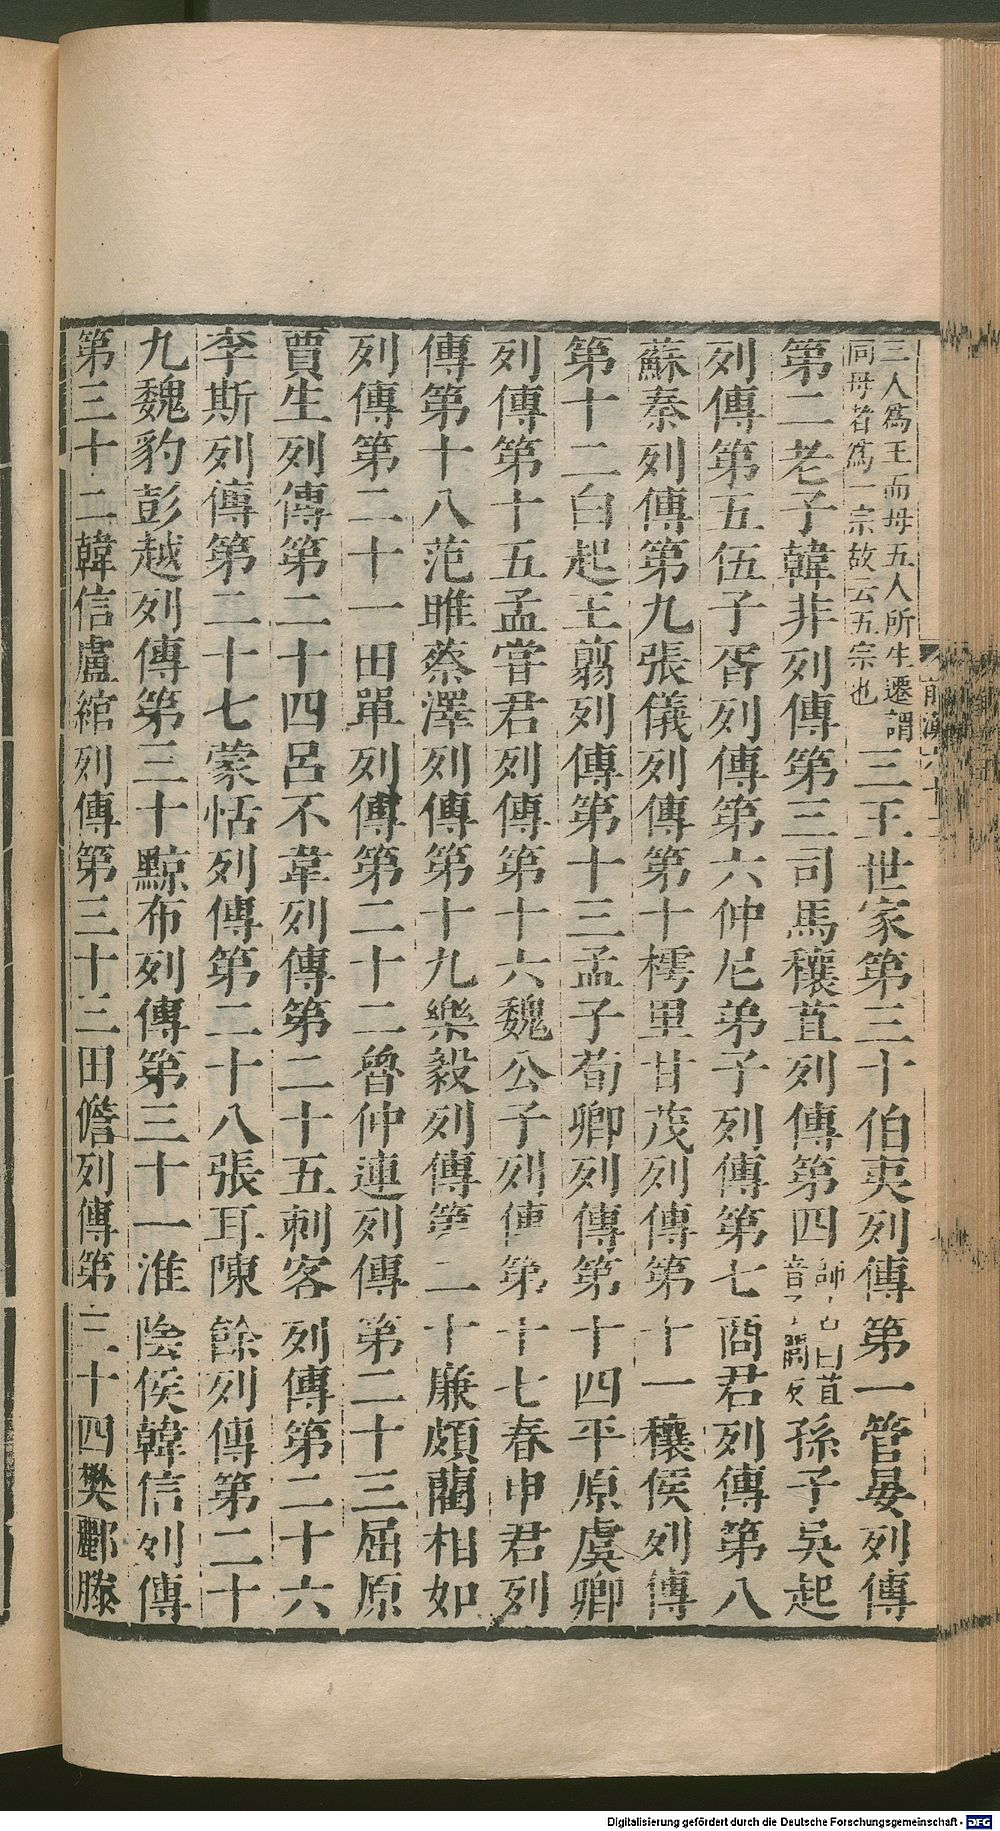 三人爲王而母五人所生遷謂
同母者爲一宗故云五宗也
三王世家第三十伯夷列傳第一管晏列傳
第二老子韓非列傳第三司馬穰苴列傳第四
師古曰苴
音子閭反
孫子吳起
列傳第五伍子胥列傳第六仲尼弟子列傳第七商君列傳第八
蘇秦列傳第九張儀列傳第十樗里甘茂列傳第十一穰侯列傳
第十二白起王翦列傳第十三孟子荀卿列傳第十四平原虞卿
列傳第十五孟嘗君列傳第十六魏公子列傳第十七春申君列
傳第十八范雎蔡澤列傳第十九樂毅列傳第二十廉頗藺相如
列傳第二十一田單列傳第二十二魯仲連列傳第二十三屈原
賈生列傳第二十四呂不韋列傳第二十五刺客列傳第二十六
李斯列傳第二十七蒙恬列傳第二十八張耳陳餘列傳第二十
九魏豹彭越列傳第三十黥布列傳第三十一淮陰侯韓信列傳
第三十二韓信盧綰列傳第三十三田儋列傳第三十四樊酈滕
前漢六十二
Digitalisierung gefördert durch die Deutsche Forschungsgemeinschaft - DFG